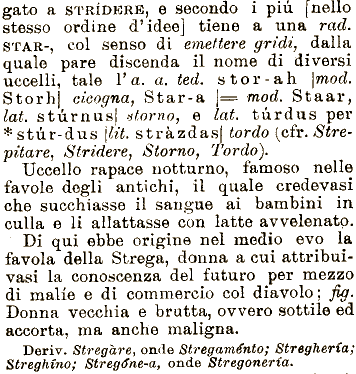 gato a STRÍDERE, e secondo i piú [nello
stesso ordine d'idee] tiene a una rad.
STAR-, col senso di emettere gridi, dalla
quale pare discenda il nome di diversi
uccelli, tale l'a. a. ted. stor-ah |mod.
Storh| cicogna, Star-a |= mod. Staar,
lat. stúrnus| storno, e lat. túrdus per
*stúr-dus |lit. stràzdas| tordo (cfr. Stre-
pitare, Stridere, Storno, Tordo).
Uccello rapace notturno, famoso nelle
favole degli antichi, il quale credevasi
che succhiasse il sangue ai bambini in
culla e li allattasse con latte avvelenato.
Di qui ebbe origine nel medio evo la
favola della Strega, donna a cui attribui-
vasi la conoscenza del futuro per mezzo
di malíe e di commercio col diavolo; fig.
Donna vecchia e brutta, ovvero sottile ed
accorta, ma anche maligna.
Deriv. Stregàre, onde Stregaménto; Streghería;
Streghíno; Stregóne-a, onde Stregonería.